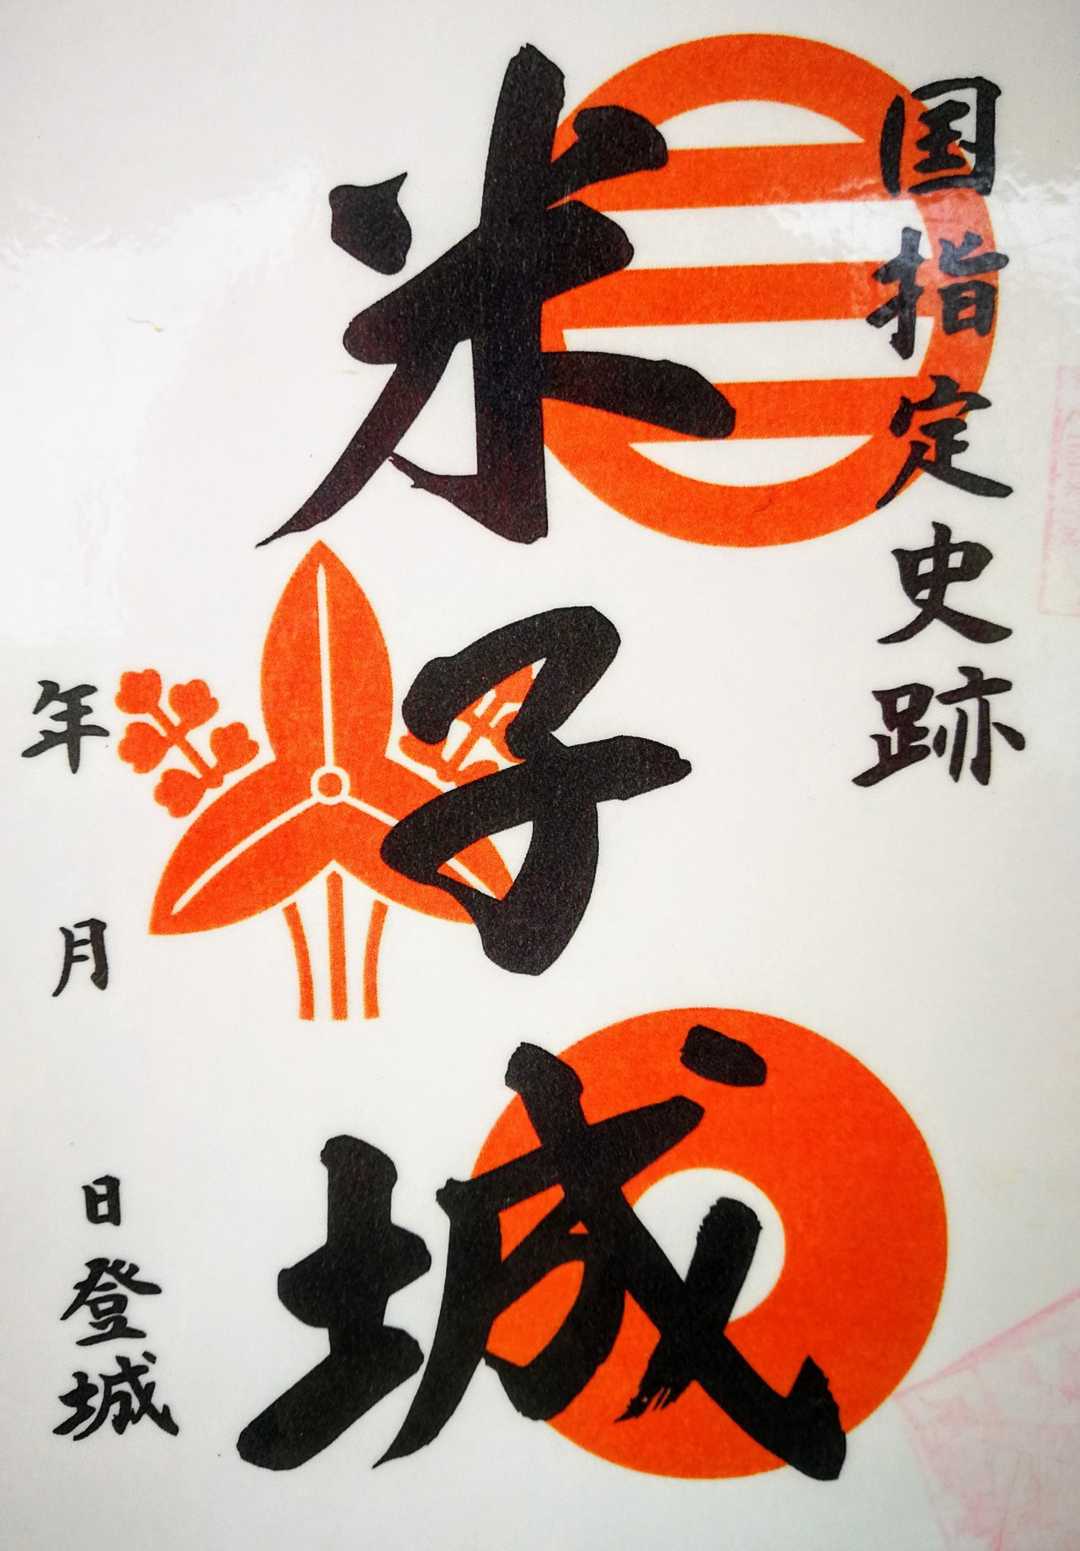 国指定史跡
米子城
年 月 日登城